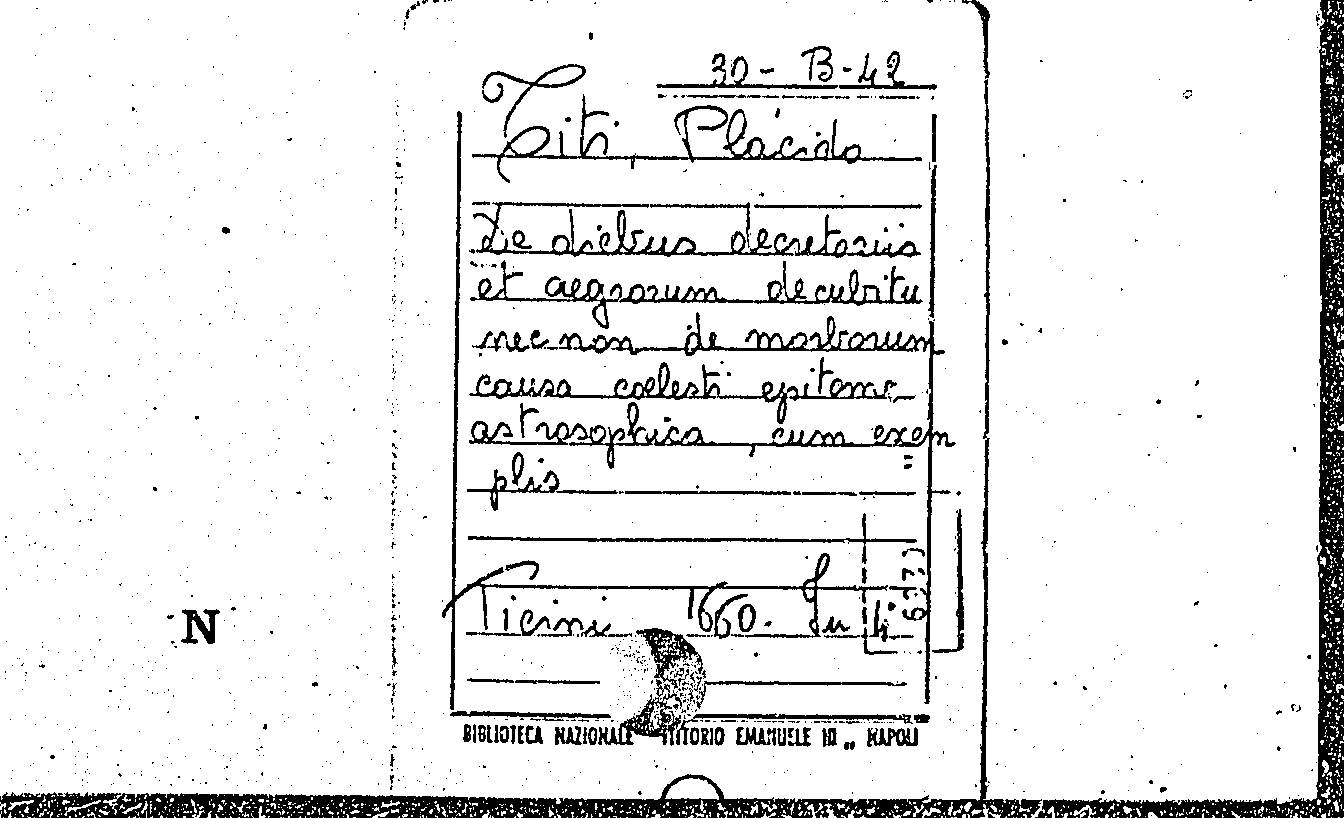 30-B-42
Titi, Plácido
De diebus decretoriis
et aegrorum decubitu
nec non de morborum
causa coelesti epitome
astrosophica, cum exem=
plis
Ticini 1660. In 4°
N
BIBLIOTECA NAZIONALE VITTORIO EMANUELE III „ NAPOLI